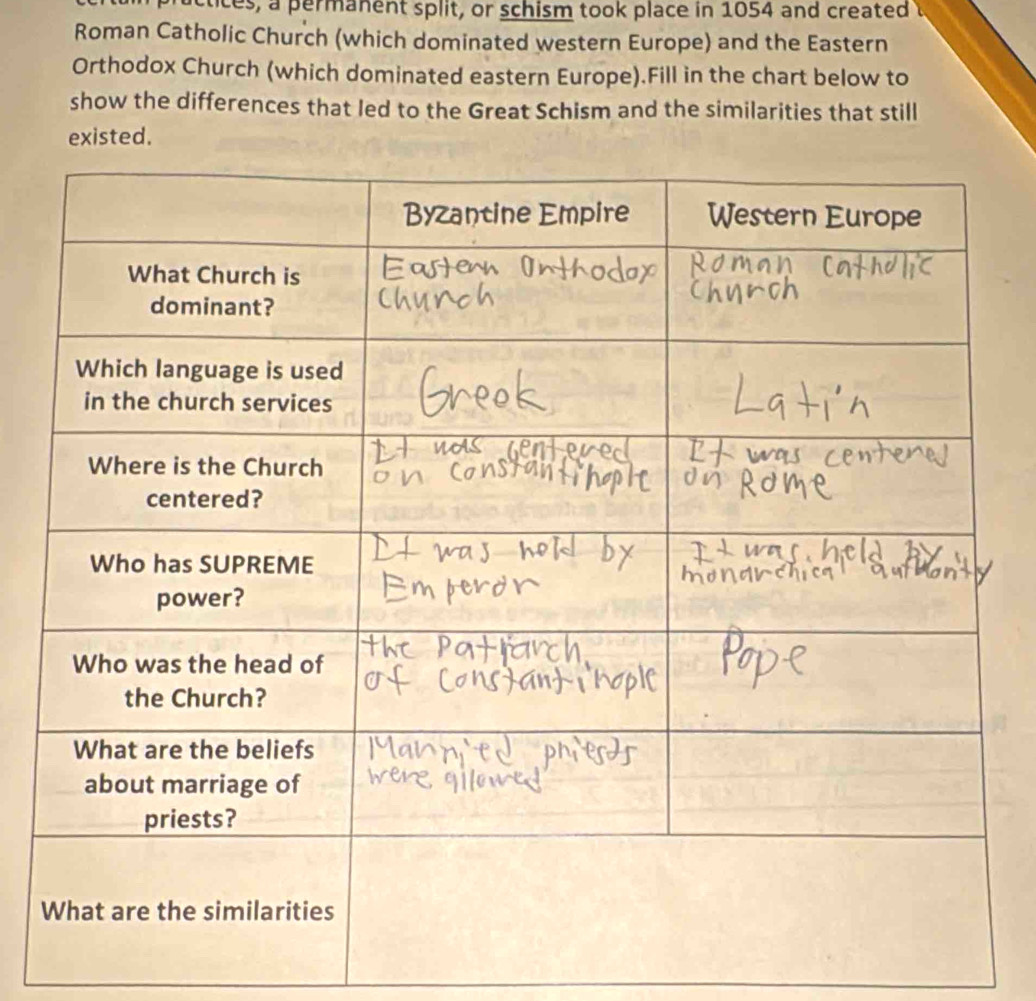 a permanent split, or schism took place in 1054 and created
Roman Catholic Church (which dominated western Europe) and the Eastern
Orthodox Church (which dominated eastern Europe).Fill in the chart below to
show the differences that led to the Great Schism and the similarities that still
existed.
Byzantine Empire
Western Europe
What Church is
dominant?
Eastern Orthodox
Church
Roman Catholic
Church
Which language is used
in the church services
Greek
Latin
Where is the Church
centered?
It was centered
on Constantinople
It was centered
on Rome
Who has SUPREME
power?
It was held by
Emperor
It was held by
monarchical authority
Who was the head of
the Church?
the Patriarch
of Constantinople
Pope
What are the beliefs
about marriage of
priests?
Married priests
were allowed
What are the similarities